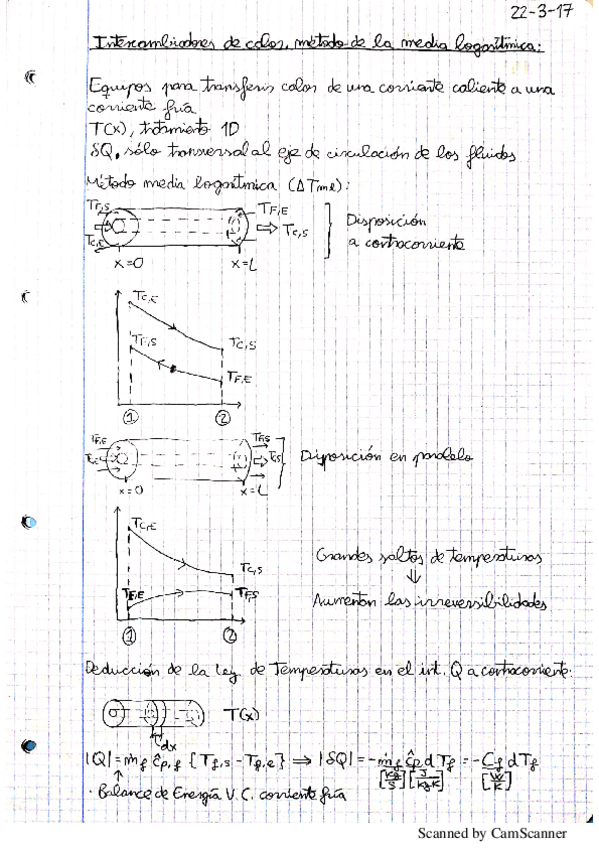 22-3-17
Intercambiadores de calor, método de la media logarítmica:
Equipos para transferir calor de una corriente caliente a una
corriente fría
T(x), tratamiento 1D
δQ, sólo transversal al eje de circulación de los fluidos
Método media logarítmica (ΔTml):
TF,S
TF,E
TC,E
TC,S
Disposición
a contracorriente
x=0
x=L
TC,E
TF,S
TC,S
TF,E
① ②
TF,E
TF,S
TC,E
TC,S
Disposición en paralelo
x=0
x=L
TC,E
TC,S
TF,E
TF,S
① ②
Grandes saltos de temperaturas
⇓
Aumentan las irreversibilidades
Deducción de la Ley de Temperaturas en el int. Q a contracorriente.
T(x)
dx
|Q| = ṁf ĉp,f {Tf,s - Tf,e} ⟹ |δQ| = -ṁf ĉp dTf = -Cf dTf
[kg/s] [J/kgK] [W/K]
· Balance de Energía V.C. corriente fría
Scanned by CamScanner